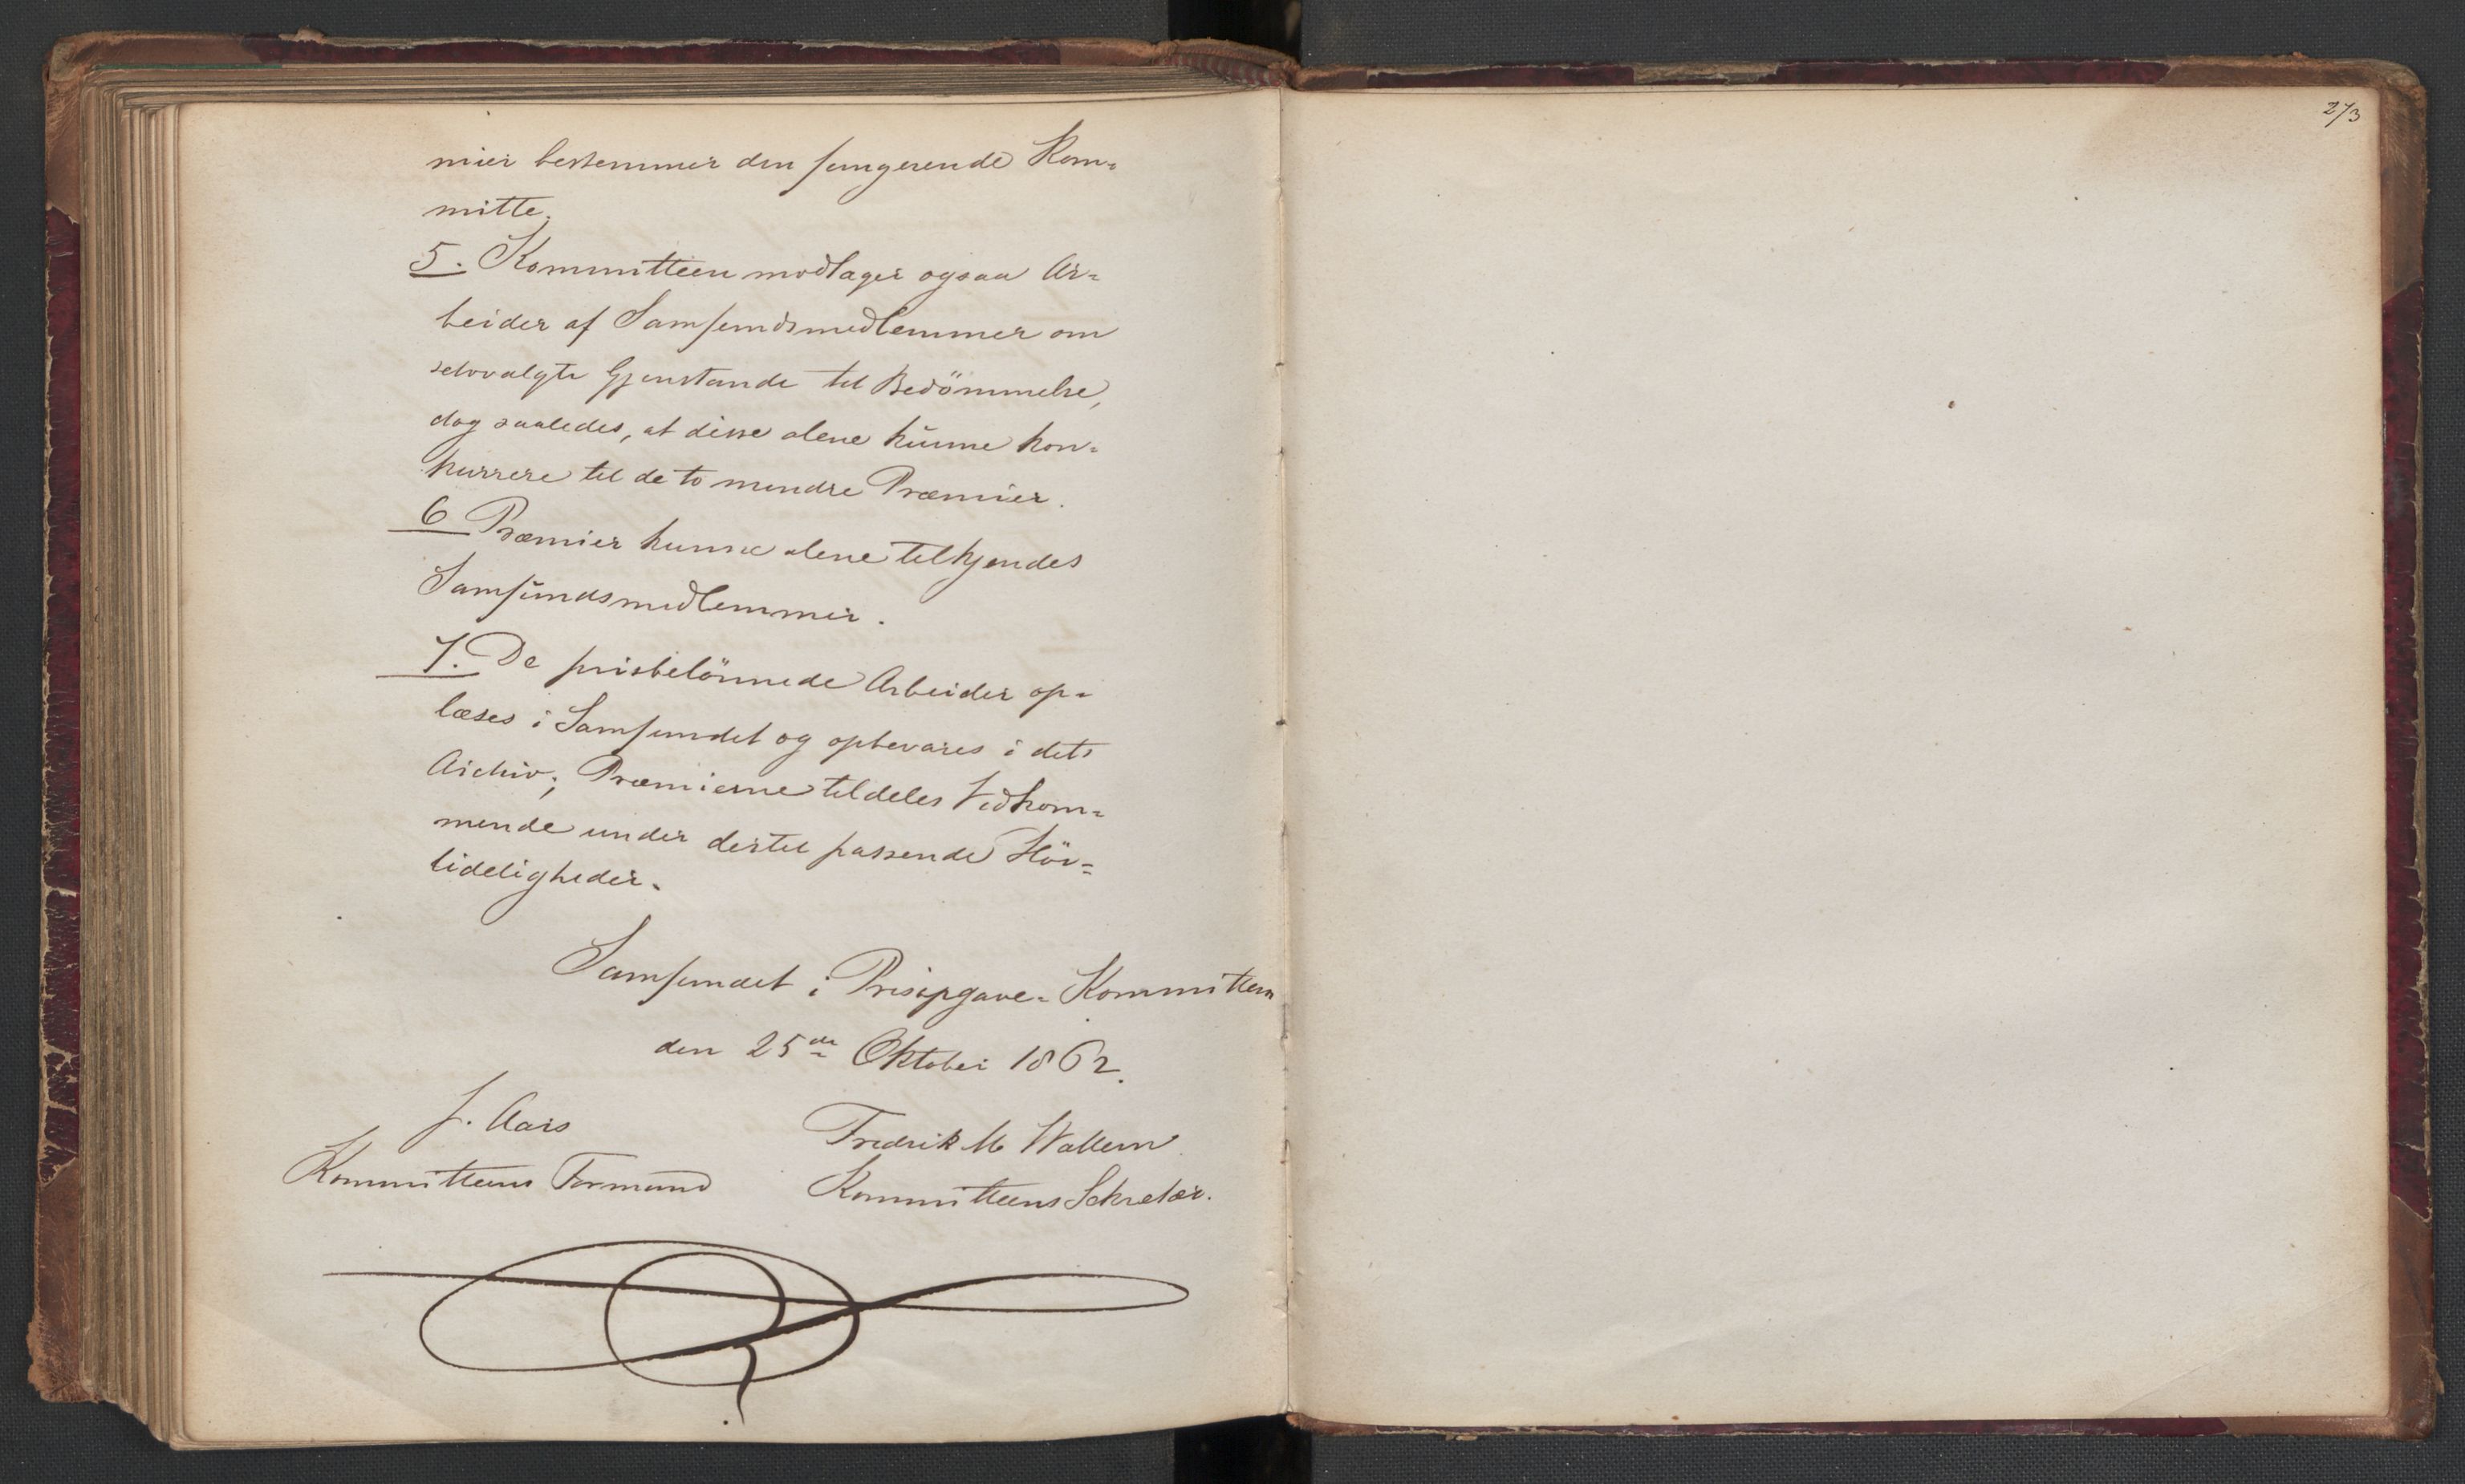 mier bestemmer den fungerende Kom=
mitte.
5. Kommitteen modtager ogsaa Ar=
beider af Samfundsmedlemmer om
selvvalgte Gjenstande til Bedömmelse,
dog saaledes, at disse alene kunne kon=
kurrere til de to mindre Præmier.
6 Præmier kunne alene tilkjendes
Samfundsmedlemmer.
7. De prisbelönnede Arbeider op=
læses i Samfundet og opbevares i dets
Archiv; Præmierne tildeles Vedkom=
mende under dertil passende Höi=
tideligheder.
Samfundet i Prisopgave=Kommitteen
den 25de Oktober 1862.
J. Aars
Fredrik M Wallem
Kommitteens Formand
Kommitteens Sekretær.
273